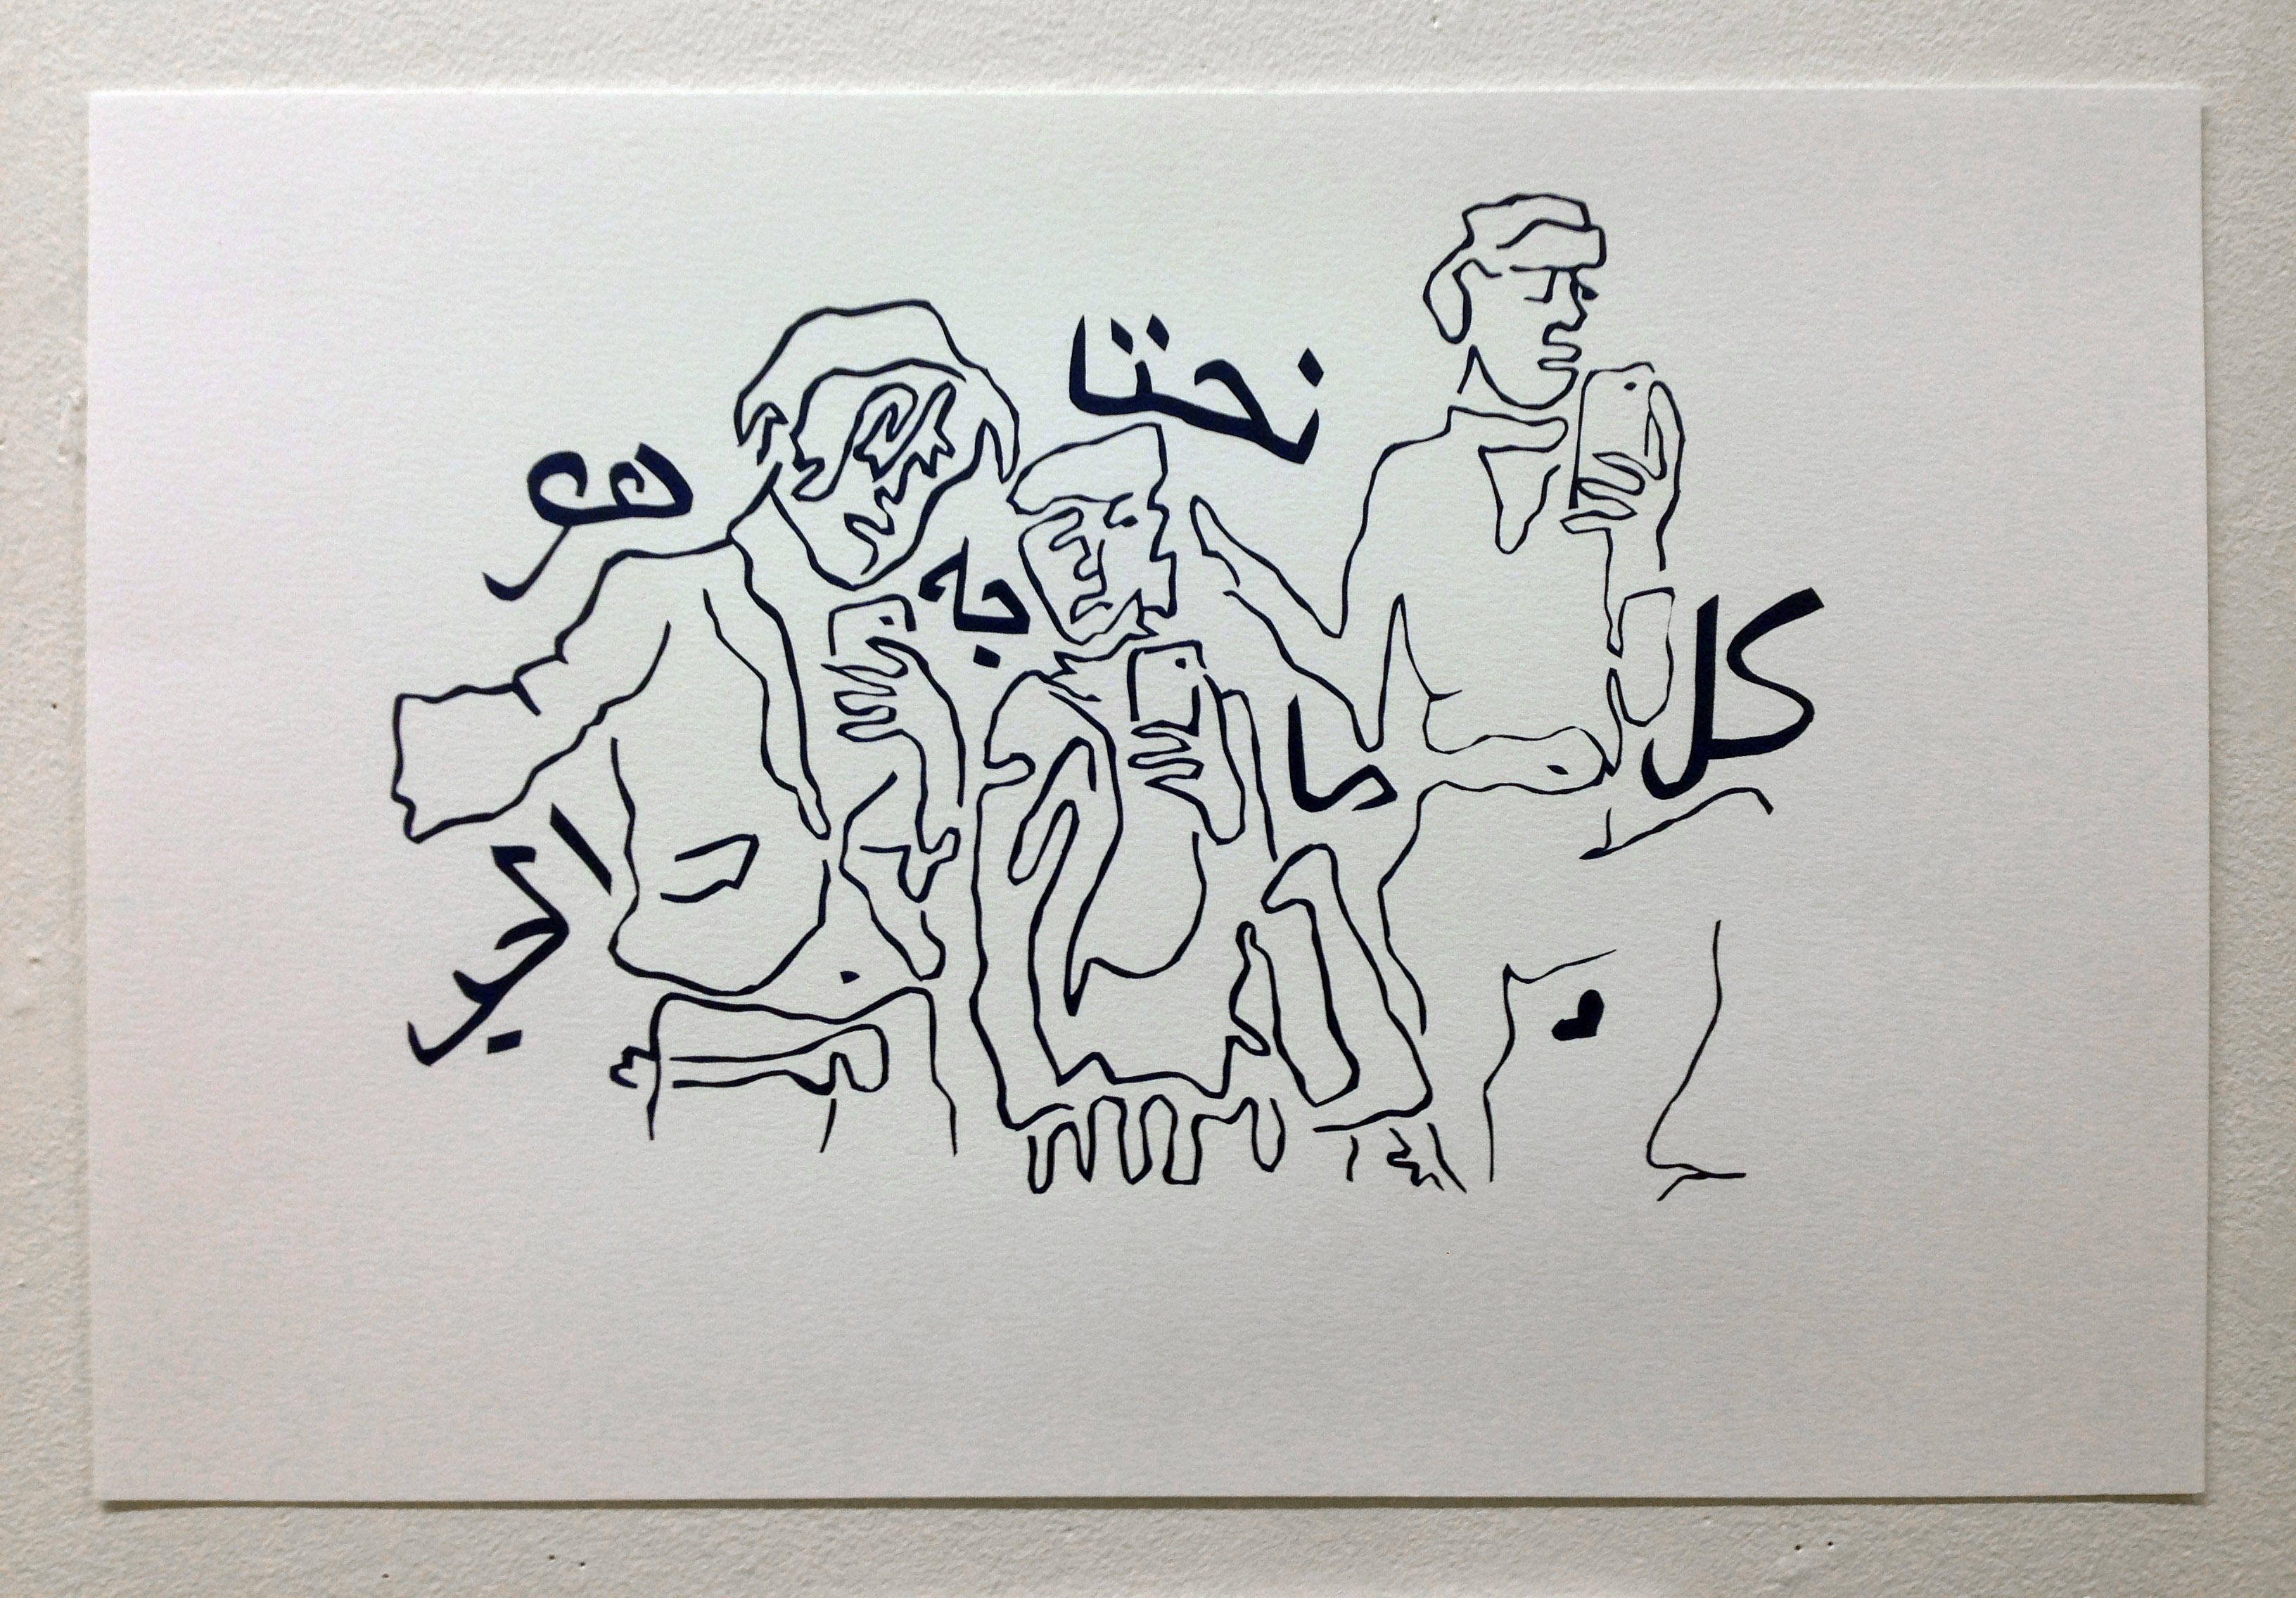 كل
ما
نحتا
جه
هو
الحب